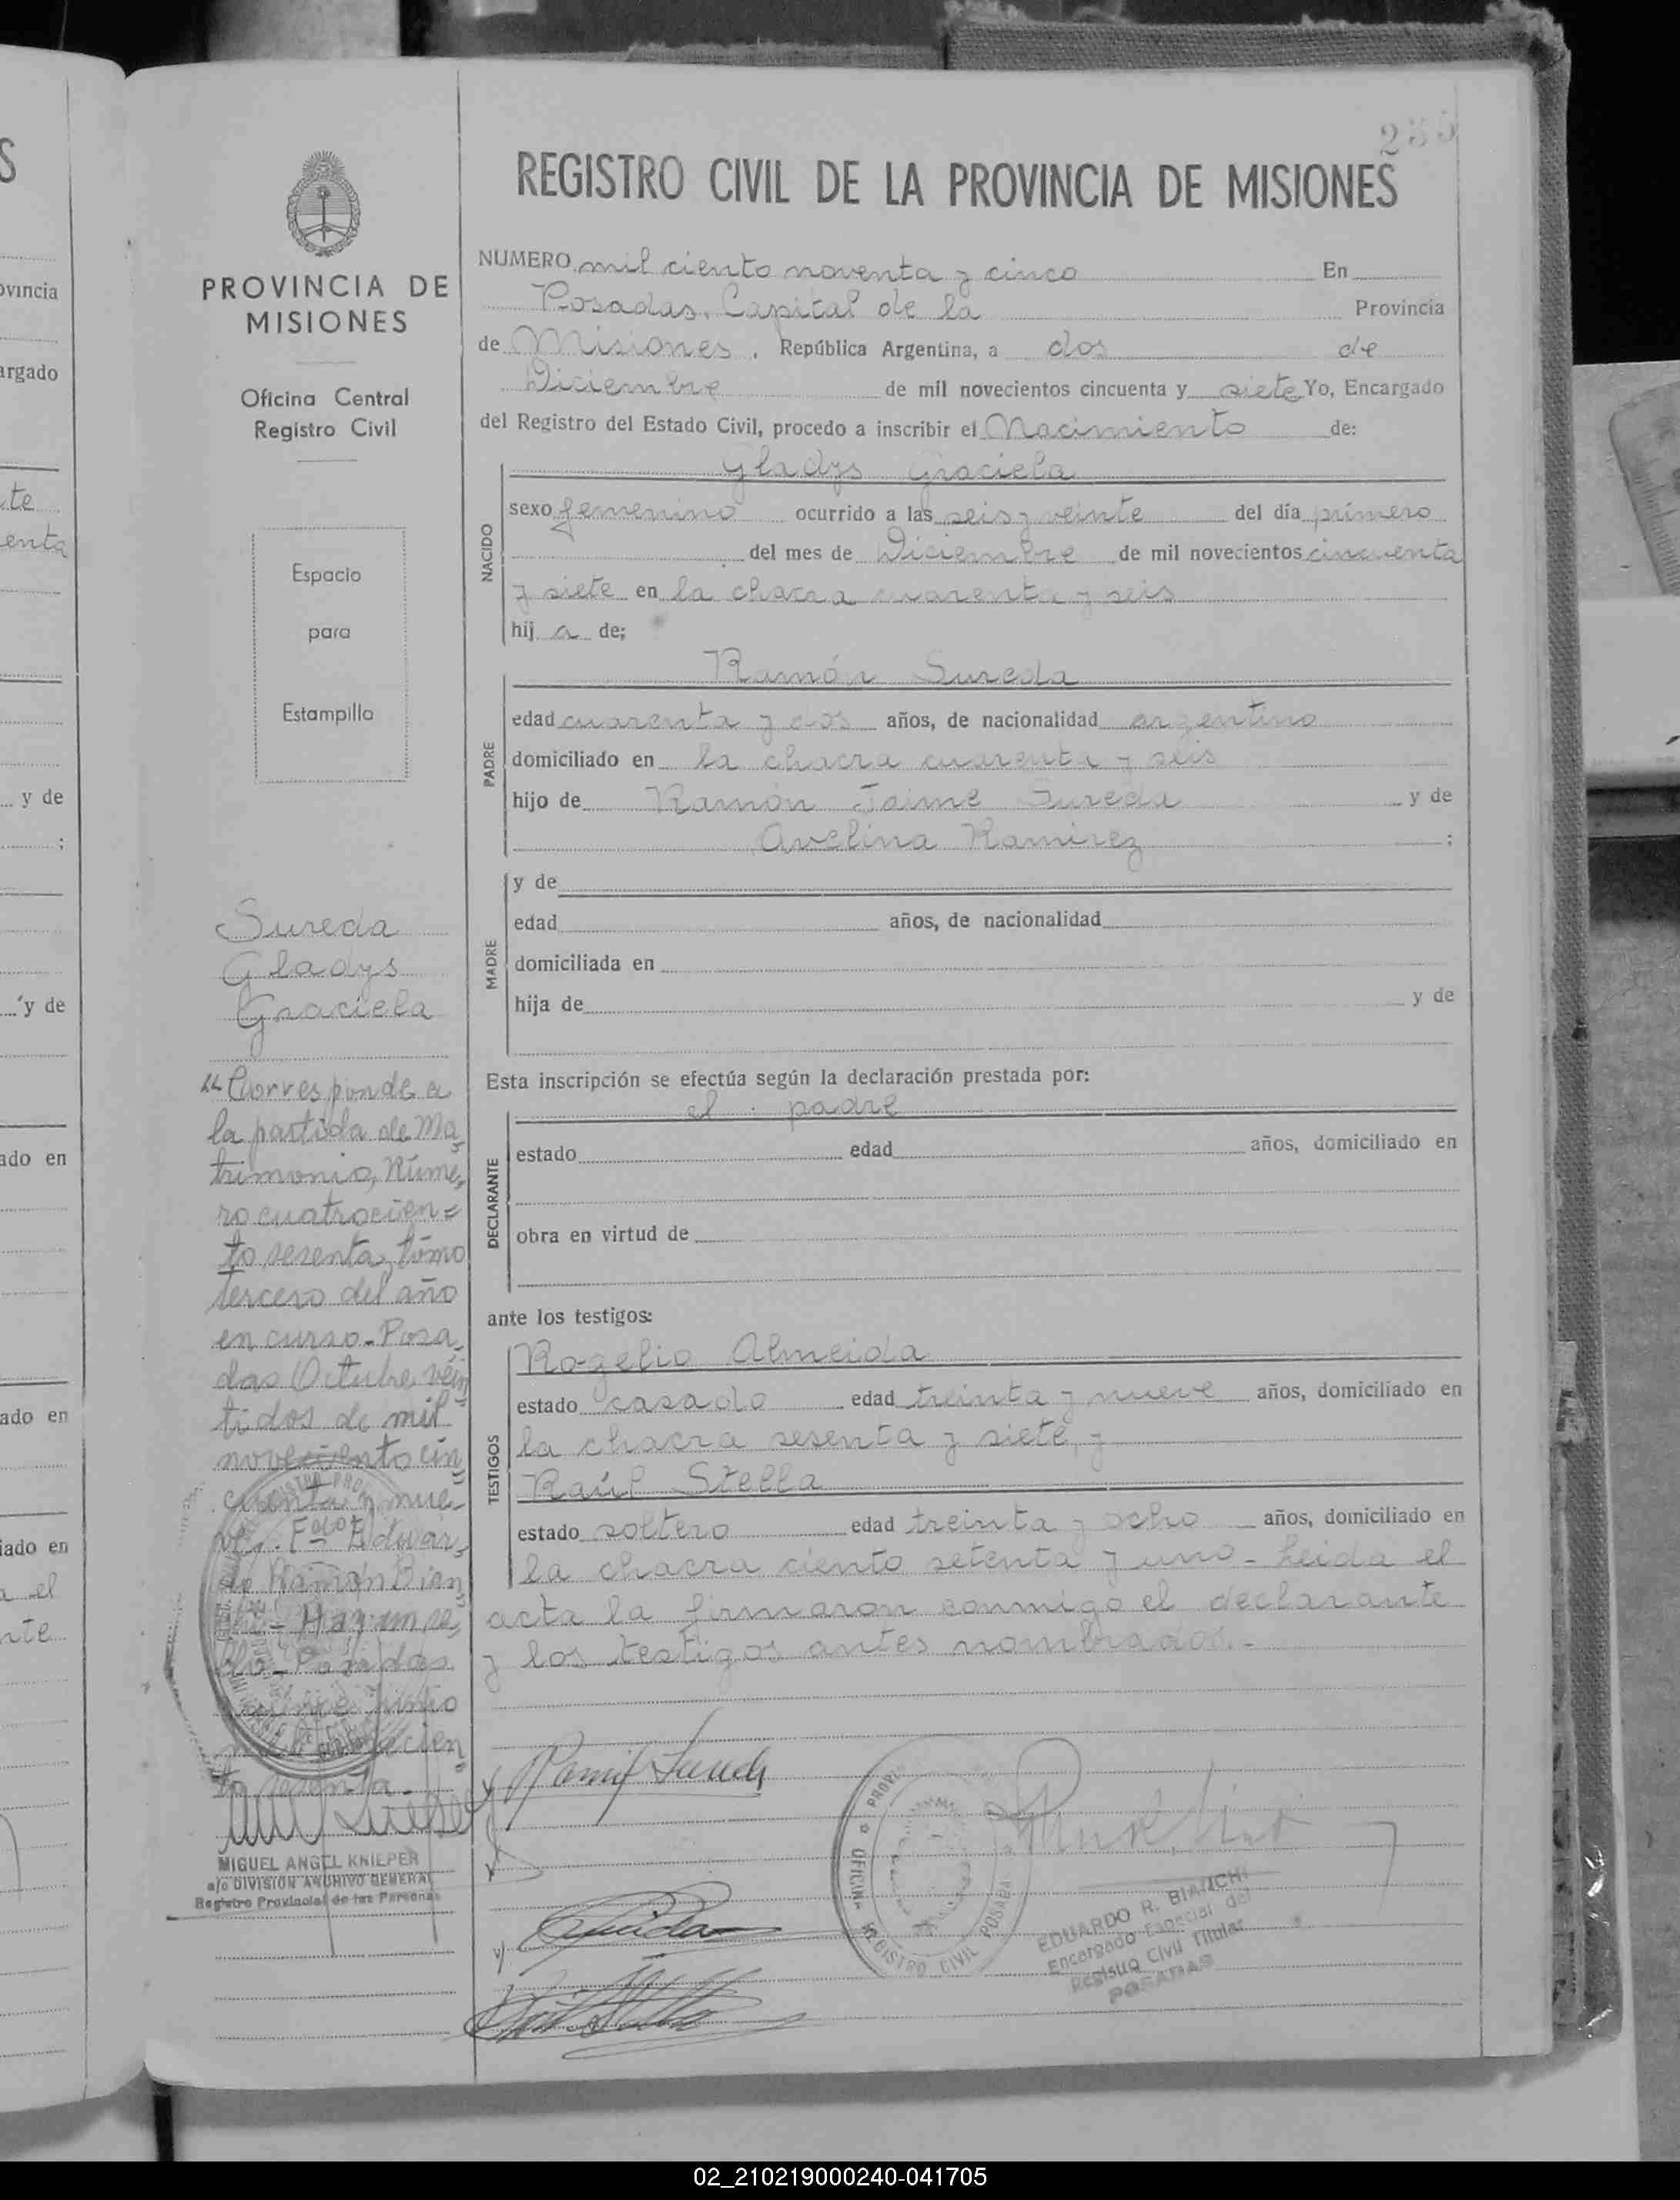 REGISTRO CIVIL DE LA PROVINCIA DE MISIONES
PROVINCIA DE
MISIONES
Oficina Central
Registro Civil
Espacio
para
Estampilla
Sureda
Gladys
Graciela
"Corresponde a
la partida de Ma
trimonio, Núme
ro cuatrocien=
to sesenta, tomo
tercero del año
en curso-Posa
das Octubre vein
tidos de mil
noveciento cin
cuenta y nue
ve. Fdo Eduar
do Ramón Bian
Hay un se
llo-Posadas
junio
cien
to sesenta.
MIGUEL ANGEL KNIEPER
a/c DIVISION ARCHIVO GENERAL
Registro Provincial de las Personas
NUMERO mil ciento noventa y cinco En
Posadas, Capital de la Provincia
de Misiones, República Argentina, a dos de
Diciembre de mil novecientos cincuenta y siete Yo, Encargado
del Registro del Estado Civil, procedo a inscribir el Nacimiento de:
NACIDO
Gladys Graciela
sexo femenino ocurrido a las seis y veinte del día primero
del mes de Diciembre de mil novecientos cincuenta
y siete en la chacra cuarenta y seis
hij a de;
PADRE
Ramón Sureda
edad cuarenta y dos años, de nacionalidad argentino
domiciliado en la chacra cuarenta y seis
hijo de Ramón Jaime Sureda y de
Avelina Ramirez ;
MADRE
y de
edad años, de nacionalidad
domiciliada en
hija de y de
Esta inscripción se efectúa según la declaración prestada por:
el padre
DECLARANTE
estado edad años, domiciliado en
obra en virtud de
ante los testigos:
TESTIGOS
Rogelio Almeida
estado casado edad treinta y nueve años, domiciliado en
la chacra sesenta y siete, y
Raúl Stella
estado soltero edad treinta y ocho años, domiciliado en
la chacra ciento setenta y uno- Leida el
acta la firmaron conmigo el declarante
y los testigos antes nombrados.-
OFICINA REGISTRO CIVIL POSADAS
EDUARDO R. BIANCHI
Encargado Especial del
Registro Civil Titular
POSADAS
02_210219000240-041705